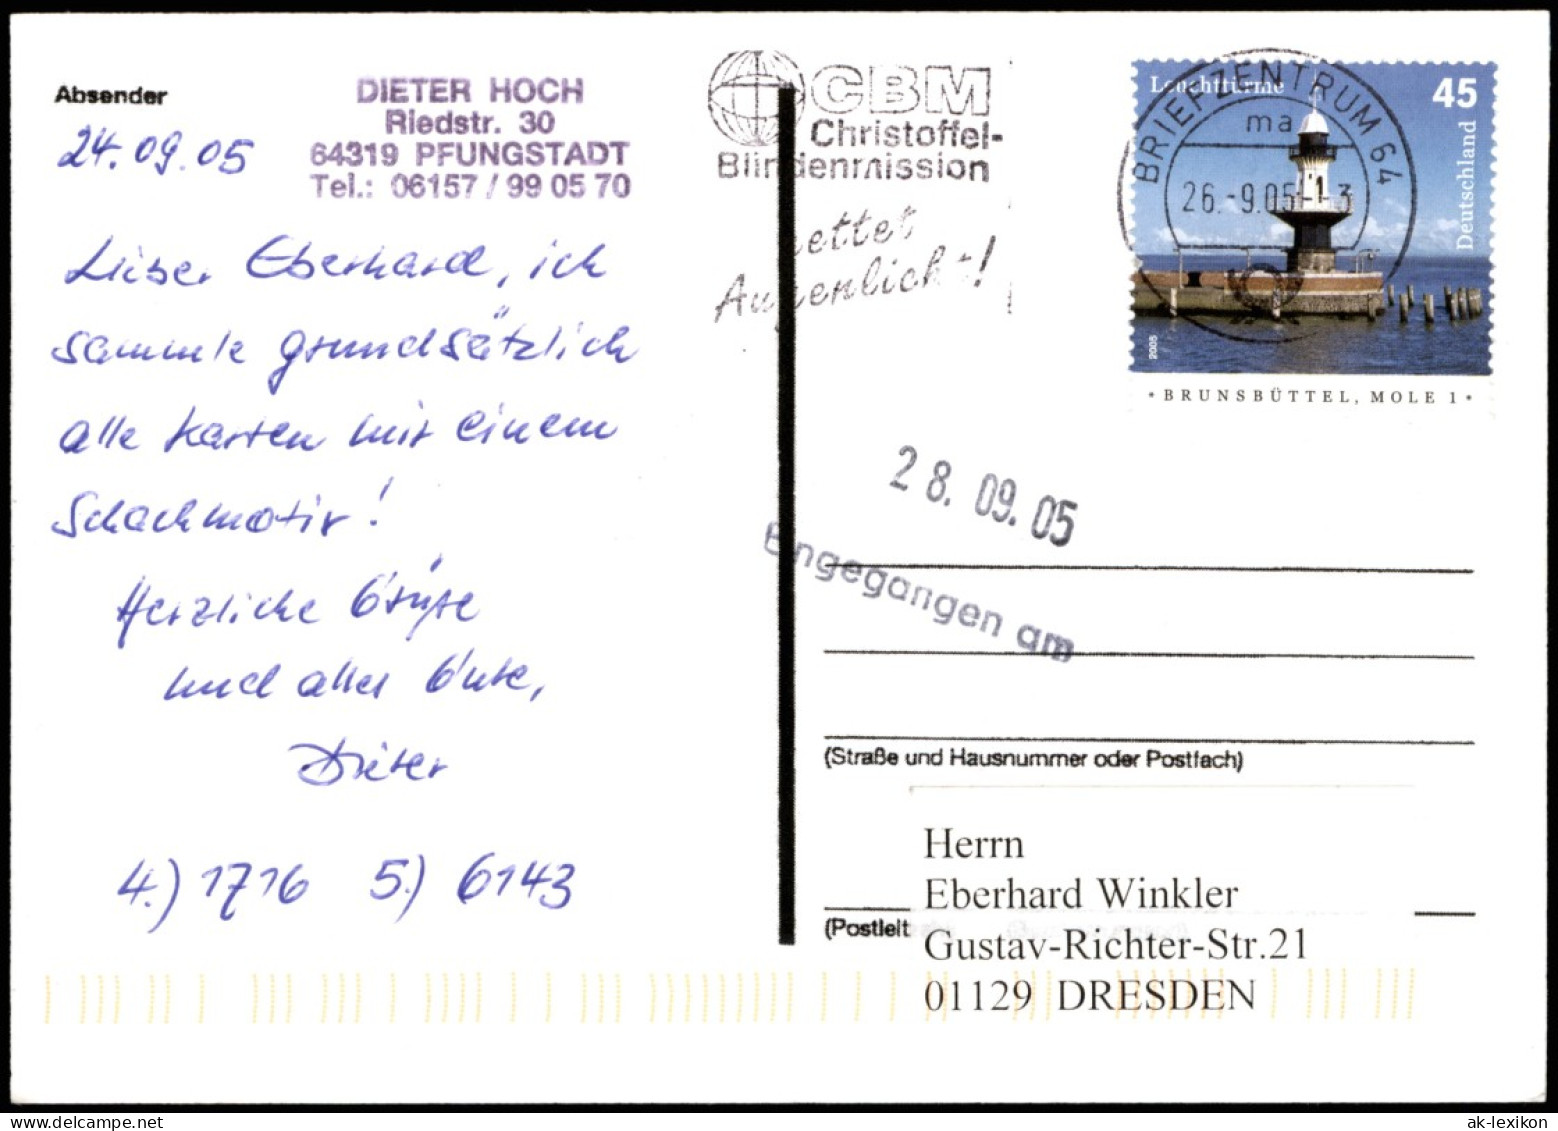 Absender
24.09.05
DIETER HOCH
Riedstr. 30
64319 PFUNGSTADT
Tel.: 06157 / 99 05 70
Lieber Eberhard, ich
sammle grundsätzlich
alle Karten mit einem
Schachmotiv!
Herzliche Grüße
und alles Gute,
Dieter
4.) 1716 5.) 6143
CBM
Christoffel-
Blindenmission
rettet
Augenlicht!
Leuchttürme 45
Deutschland
2005
BRIEFZENTRUM 64
ma
26.-9.05-13
* BRUNSBÜTTEL, MOLE 1 *
28.09.05
Eingegangen am
(Straße und Hausnummer oder Postfach)
(Postleit
Herrn
Eberhard Winkler
Gustav-Richter-Str.21
01129 DRESDEN
ak-lexikon.com